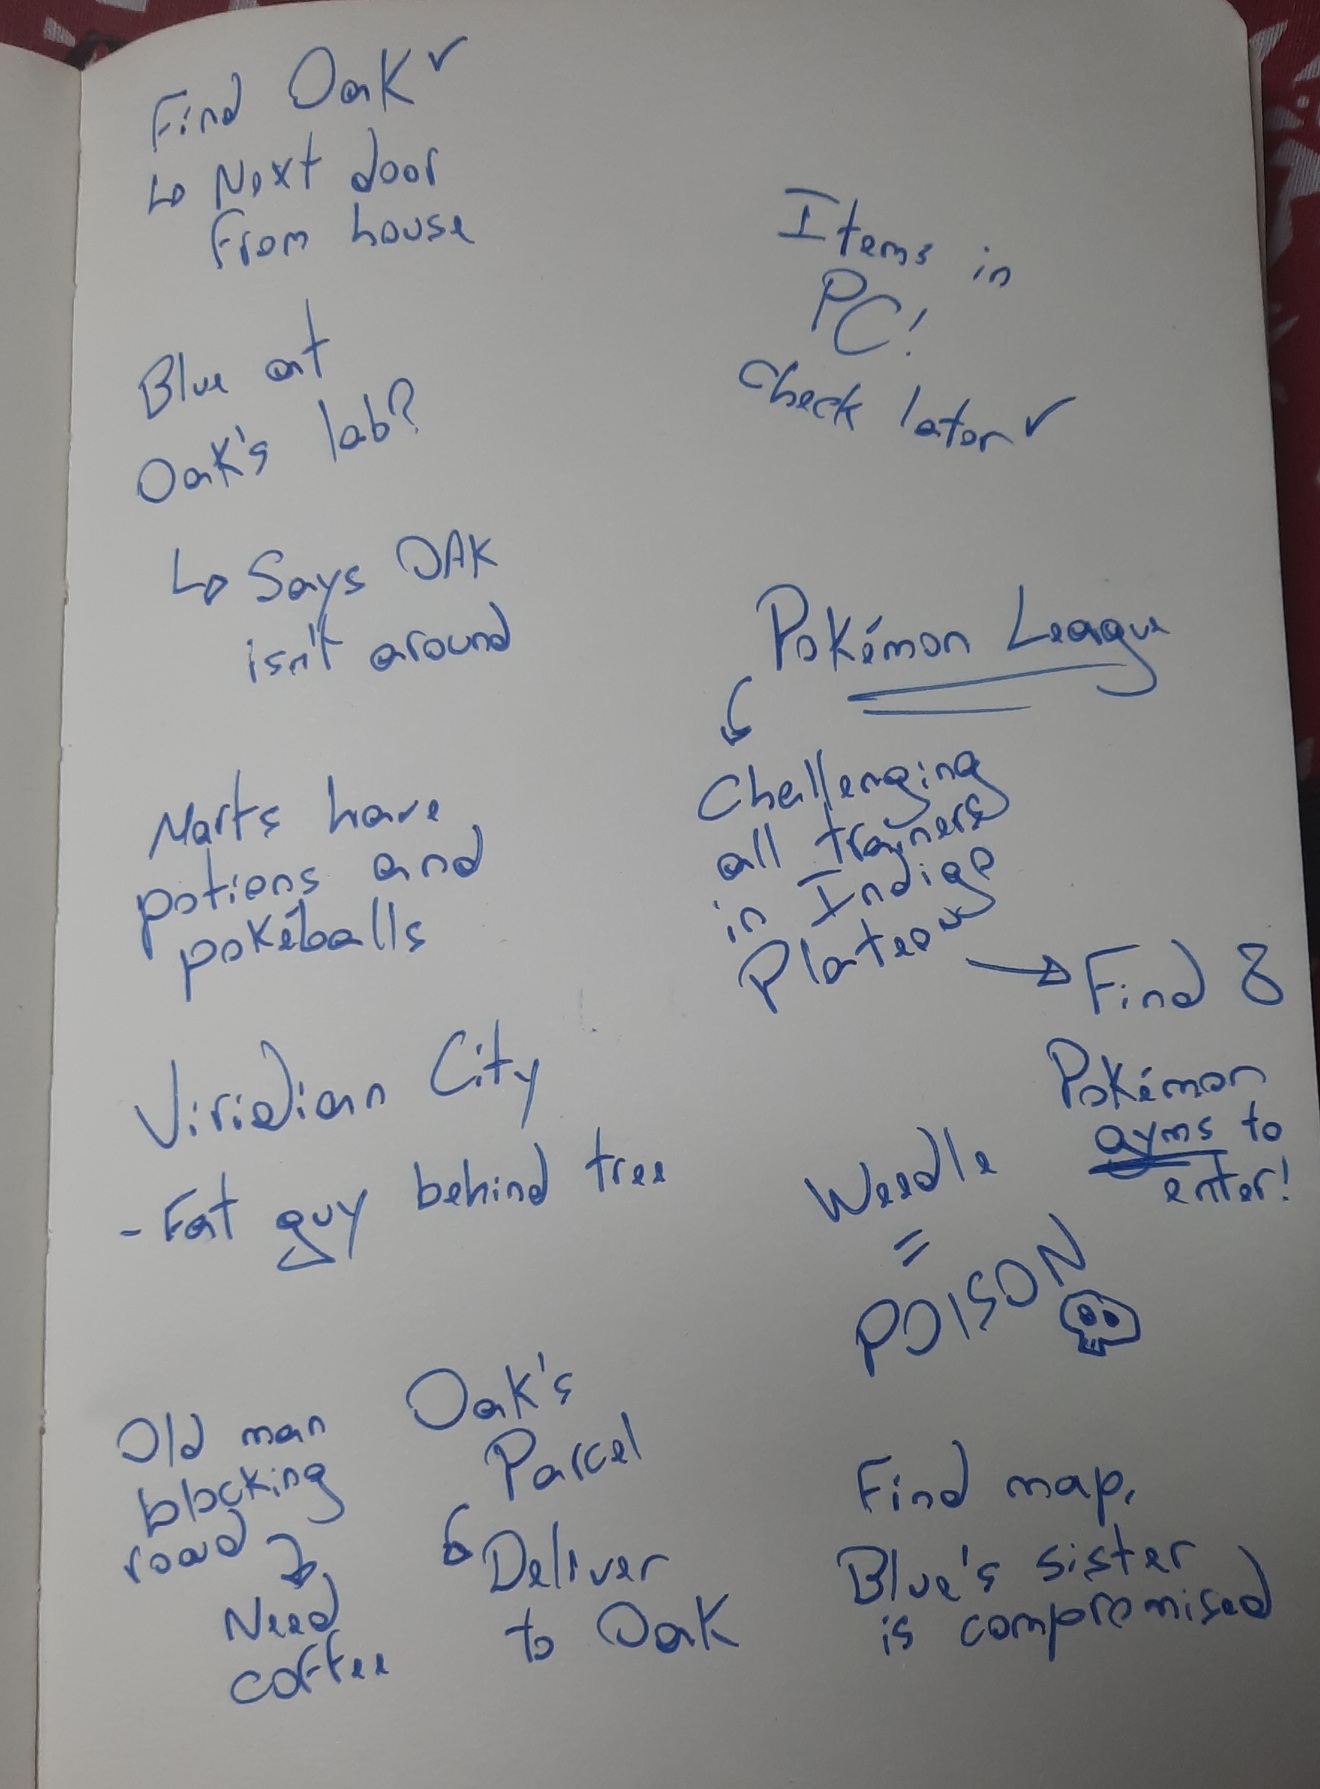 Find Oak ✓
↳ Next door
from house
Blue at
Oak's lab?
↳ Says OAK
isn't around
Marts have
potions and
pokéballs
Viridian City
- Fat guy behind tree
Old man
blocking
road →
Need
coffee
Oak's
Parcel
↳ Deliver
to Oak
Items in
PC!
Check later ✓
Pokémon League
↓
Challenging
all trainers
in Indigo
Plateau
→ Find 8
Pokémon
gyms to
enter!
Weedle
=
POISON
Find map,
Blue's sister
is compromised